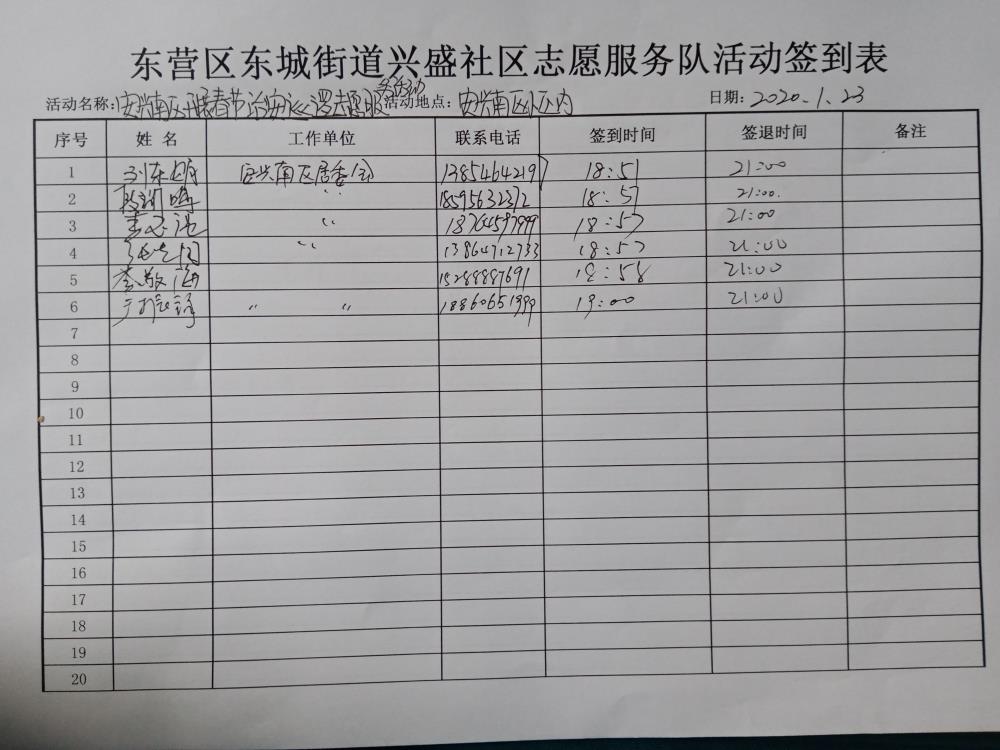 东营区东城街道兴盛社区志愿服务队活动签到表
活动名称:安兴南区开展春节治安巡逻志愿服务活动 活动地点:安兴南区小区内 日期:2020.1.23
序号 姓名 工作单位 联系电话 签到时间 签退时间 备注
1 安兴南区居委会 13854642197 18:51 21:00
2 〃 18595632312 18:57 21:00.
3 〃 18764597999 18:57 21:00
4 〃 13864712733 18:57 21:00
5 李敬海 15288887691 18:58 21:00
6 〃 〃 18860651999 19:00 21:00
7
8
9
10
11
12
13
14
15
16
17
18
19
20